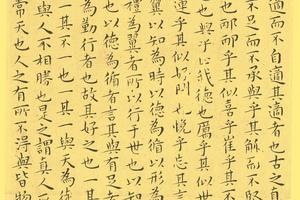 適而不自適其適者也古之真
不足而不承與乎其觚而不堅
也邴邴乎其似喜乎崔乎其不
也與乎止我德也厲乎其似世
連乎其似好閉也悗乎忘其言
翼以知為時以德為循以形為
禮為翼者所以行于世也以知
也以德為循者言其與有足者
為勤行者也故其好之也一其
一其不一也一其一與天為徒
與人不相勝也是之謂真人
常天也人之有所不得與皆物